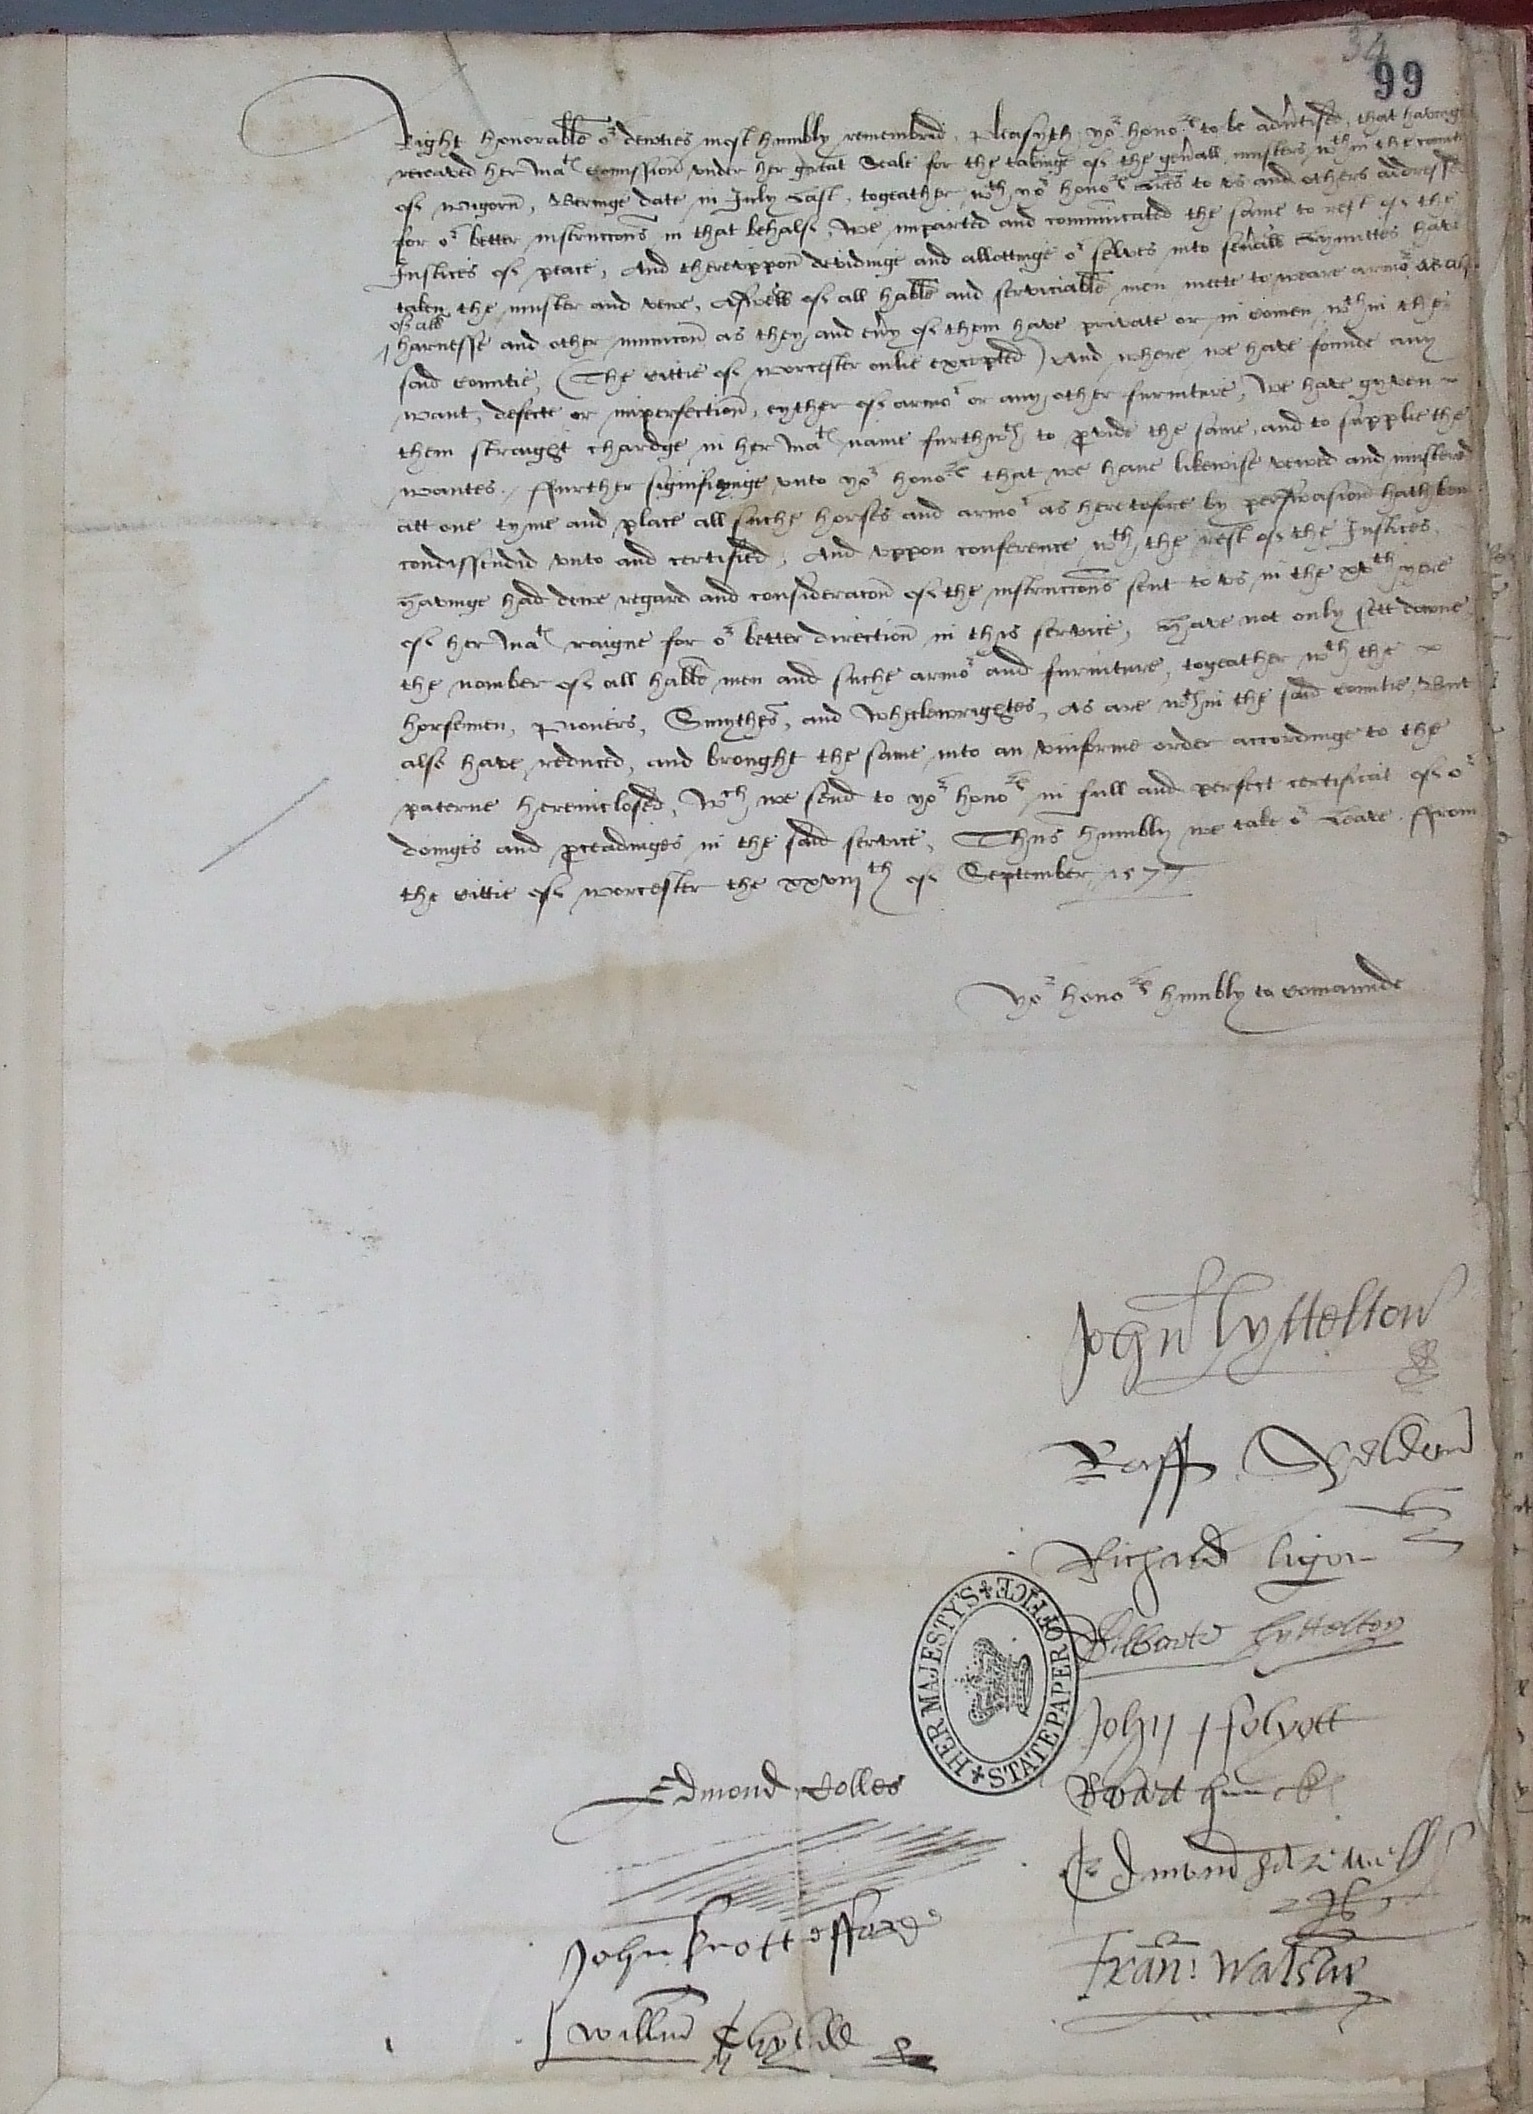 34
99
Right honorable or dewties most humbly remembrid, Pleasyth yor honors to be advrtised, that havinge
receaved her Matis Comission vnder her great Seale for the takinge of the gen'all musters wthin the countie
of wigorn, Beringe date in July Last, togeather wth yor honors lres to vs and others addressed
for or better instruccons in that behalfe, we imparted and communicated the same to rest of the
Justices of peace, And therevppon devidinge and allottinge or selves into sev'all Lymittes have
taken the muster and vewe, Aswell of all hable and serviciable men meete to weare armor, As also
of all
harnesse and other municon as they and ev'y of them have private or in comen, wthin the
said Countie, (The Cittie of worcester onlie excepted) And where we have founde any
want, defecte or imperfection, eyther of armor or any other furniture, we have gyven
them straight chardge in her Matis name furthwth to pvide the same, and to supplie the
wantes. ffurther signifienge vnto yor honors that we haue likewise vewed and mustered
att one tyme and place all suche horses and armor as heretofore by perswasion hath ben
condissendid vnto and certified, And vppon conference wth the rest of the Justices,
havinge had dewe regard and consideracon of the instruccons sent to vs in the xvth yere
of her Matis raigne for or better direction in this service, Have not only sett downe
the nomber of all hable men and suche armor and furniture, togeather wth the
horsemen, Pioners, Smythes, and wheelewrightes, as are wthin the said Countie, But
also have reduced, and brought the same into an vniforme order accordinge to the
paterne hereinclosed, wch we send to yor honors in full and perfect certificat of or
doinges and pceadinges in the said service, Thus humbly we take or Leave. ffrom
the Cittie of worcester the xxviijth of September 1577
Yor honors humbly to comaunde
John Lyttelton
Raff Sheldon
Richard Ligon
Gilbarte Lyttelton
HER MAJESTY'S STATE PAPER OFFICE
John ffolyott
Edmond Colles
John Lyttelton
Fran: Walshe
Willm Chyld